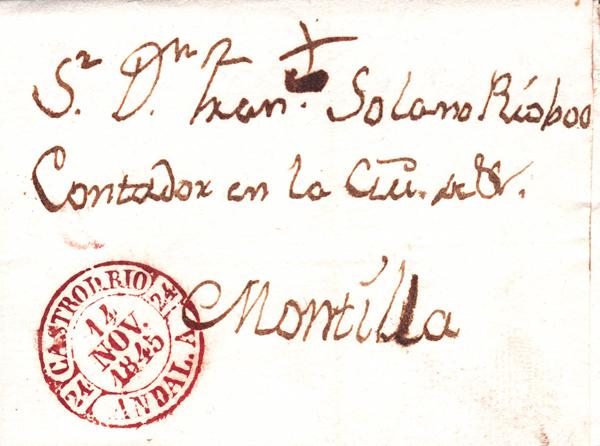 Sr. Dn. Fran.co Solano Rioboo
Contador en la Ciu. de
Montilla
CASTRO D. RIO
14
NOV.
1845
ANDAL. A.